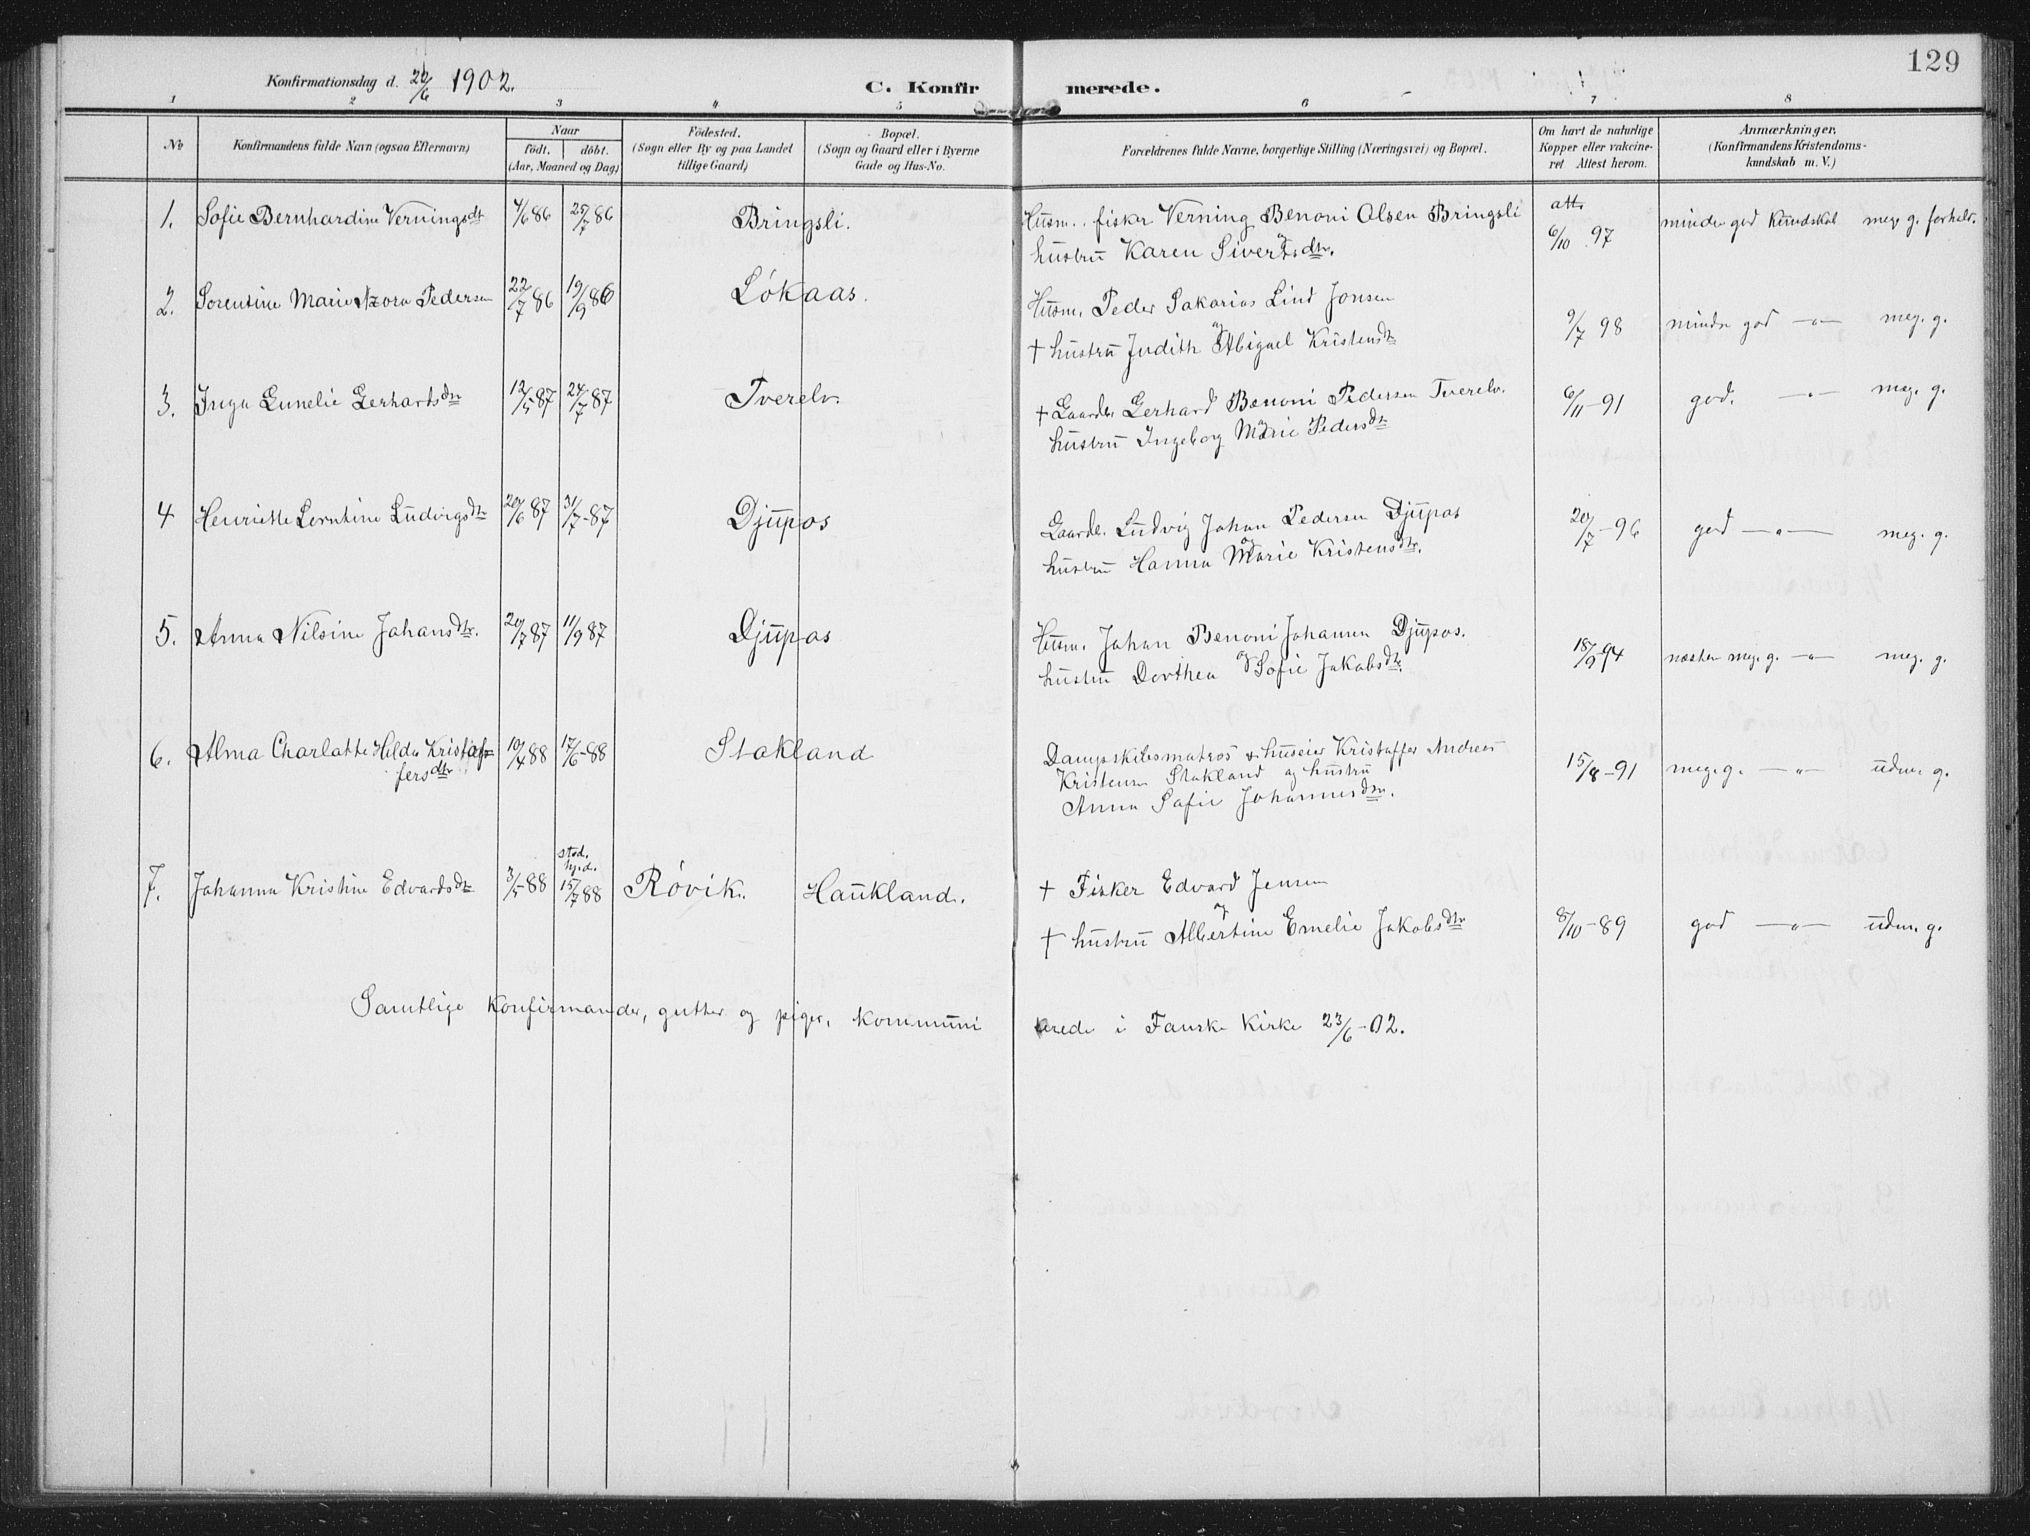 129
Konfirmationsdag d. 22/6 1902.
C. Konfirmerede.
1 2 3 4 5 6 7 8
No
Konfirmandens fulde Navn (ogsaa Efternavn)
Naar
født. døbt.
(Aar, Maaned og Dag)
Fødested.
(Sogn eller By og paa Landet
tillige Gaard)
Bopæl.
(Sogn og Gaard eller i Byerne
Gade og Hus-No.
Forældrenes fulde Navne, borgerlige Stilling (Næringsvei) og Bopæl.
Om havt de naturlige
Kopper eller vakcine-
ret Attest herom.
Anmærkninger.
(Konfirmandens Kristendoms-
kundskab m. V.)
1. Sofie Bernhardine Verningsdt 4/6 86 25/7 86 Bringsli. Husm. fisker Verning Benoni Olsen Bringsli att. mindre god kundskab meg. g. forhold.
hustru Karen Sivertsdtr. 6/10 97
2. Sorentine Marie Nzora Pedersen 22/7 86 19/9 86 Løkaas. Husm. Peder Sakarias Lind Jonsen
† hustru Judith Abigael Kristensdtr 9/7 98 mindre god -"- meg. g.
3. Inga Gunelie Gerhartsdtr 12/5 87 24/7 87 Tverelv. † Gaardbr. Gerhard Benoni Pedersen Tverelv. 6/11-91 god. -"- meg. g.
hustru Ingeborg og Marie Pedersdtr
4 Henriette Lorntine Ludvigsdtr 20/6 87 31/7-87 Djupos Gaardb. Ludvig Johan Pedersen Djupos 20/7-96 god -"- meg. g.
hustru Hanna og Marie Kristensdtr.
5. Anna Nilsine Johansdtr. 20/7 87 11/9 87 Djupos Husm. Johan Benoni Johansen Djupos.
hustru Dorthea og Sofie Jakobsdtr. 18/9-94 næsten meg. g. -"- meg. g.
6. Alma Charlotte Hilda Kristof-
fersdtr 19/4 88 17/6-88 Stokland Dampskibsmatros & huseier Kristoffer Andreas
Kristensen Stokland og hustru 15/8-91 meg. g. -"- udm. g.
Anna Sofie Johannesdtr.
7. Johanna Kristine Edvardsdtr 3/5 88 stad. hj.d. 15/7 88 Røvik. Haukland. † Fisker Edvard Jensen
† hustru Albertine og Emelie Jakobsdtr 8/10-89 god -"- udm. g.
Samtlige Konfirmander, gutter og piger, kommunicerede i Fauske Kirke 23/6-02.